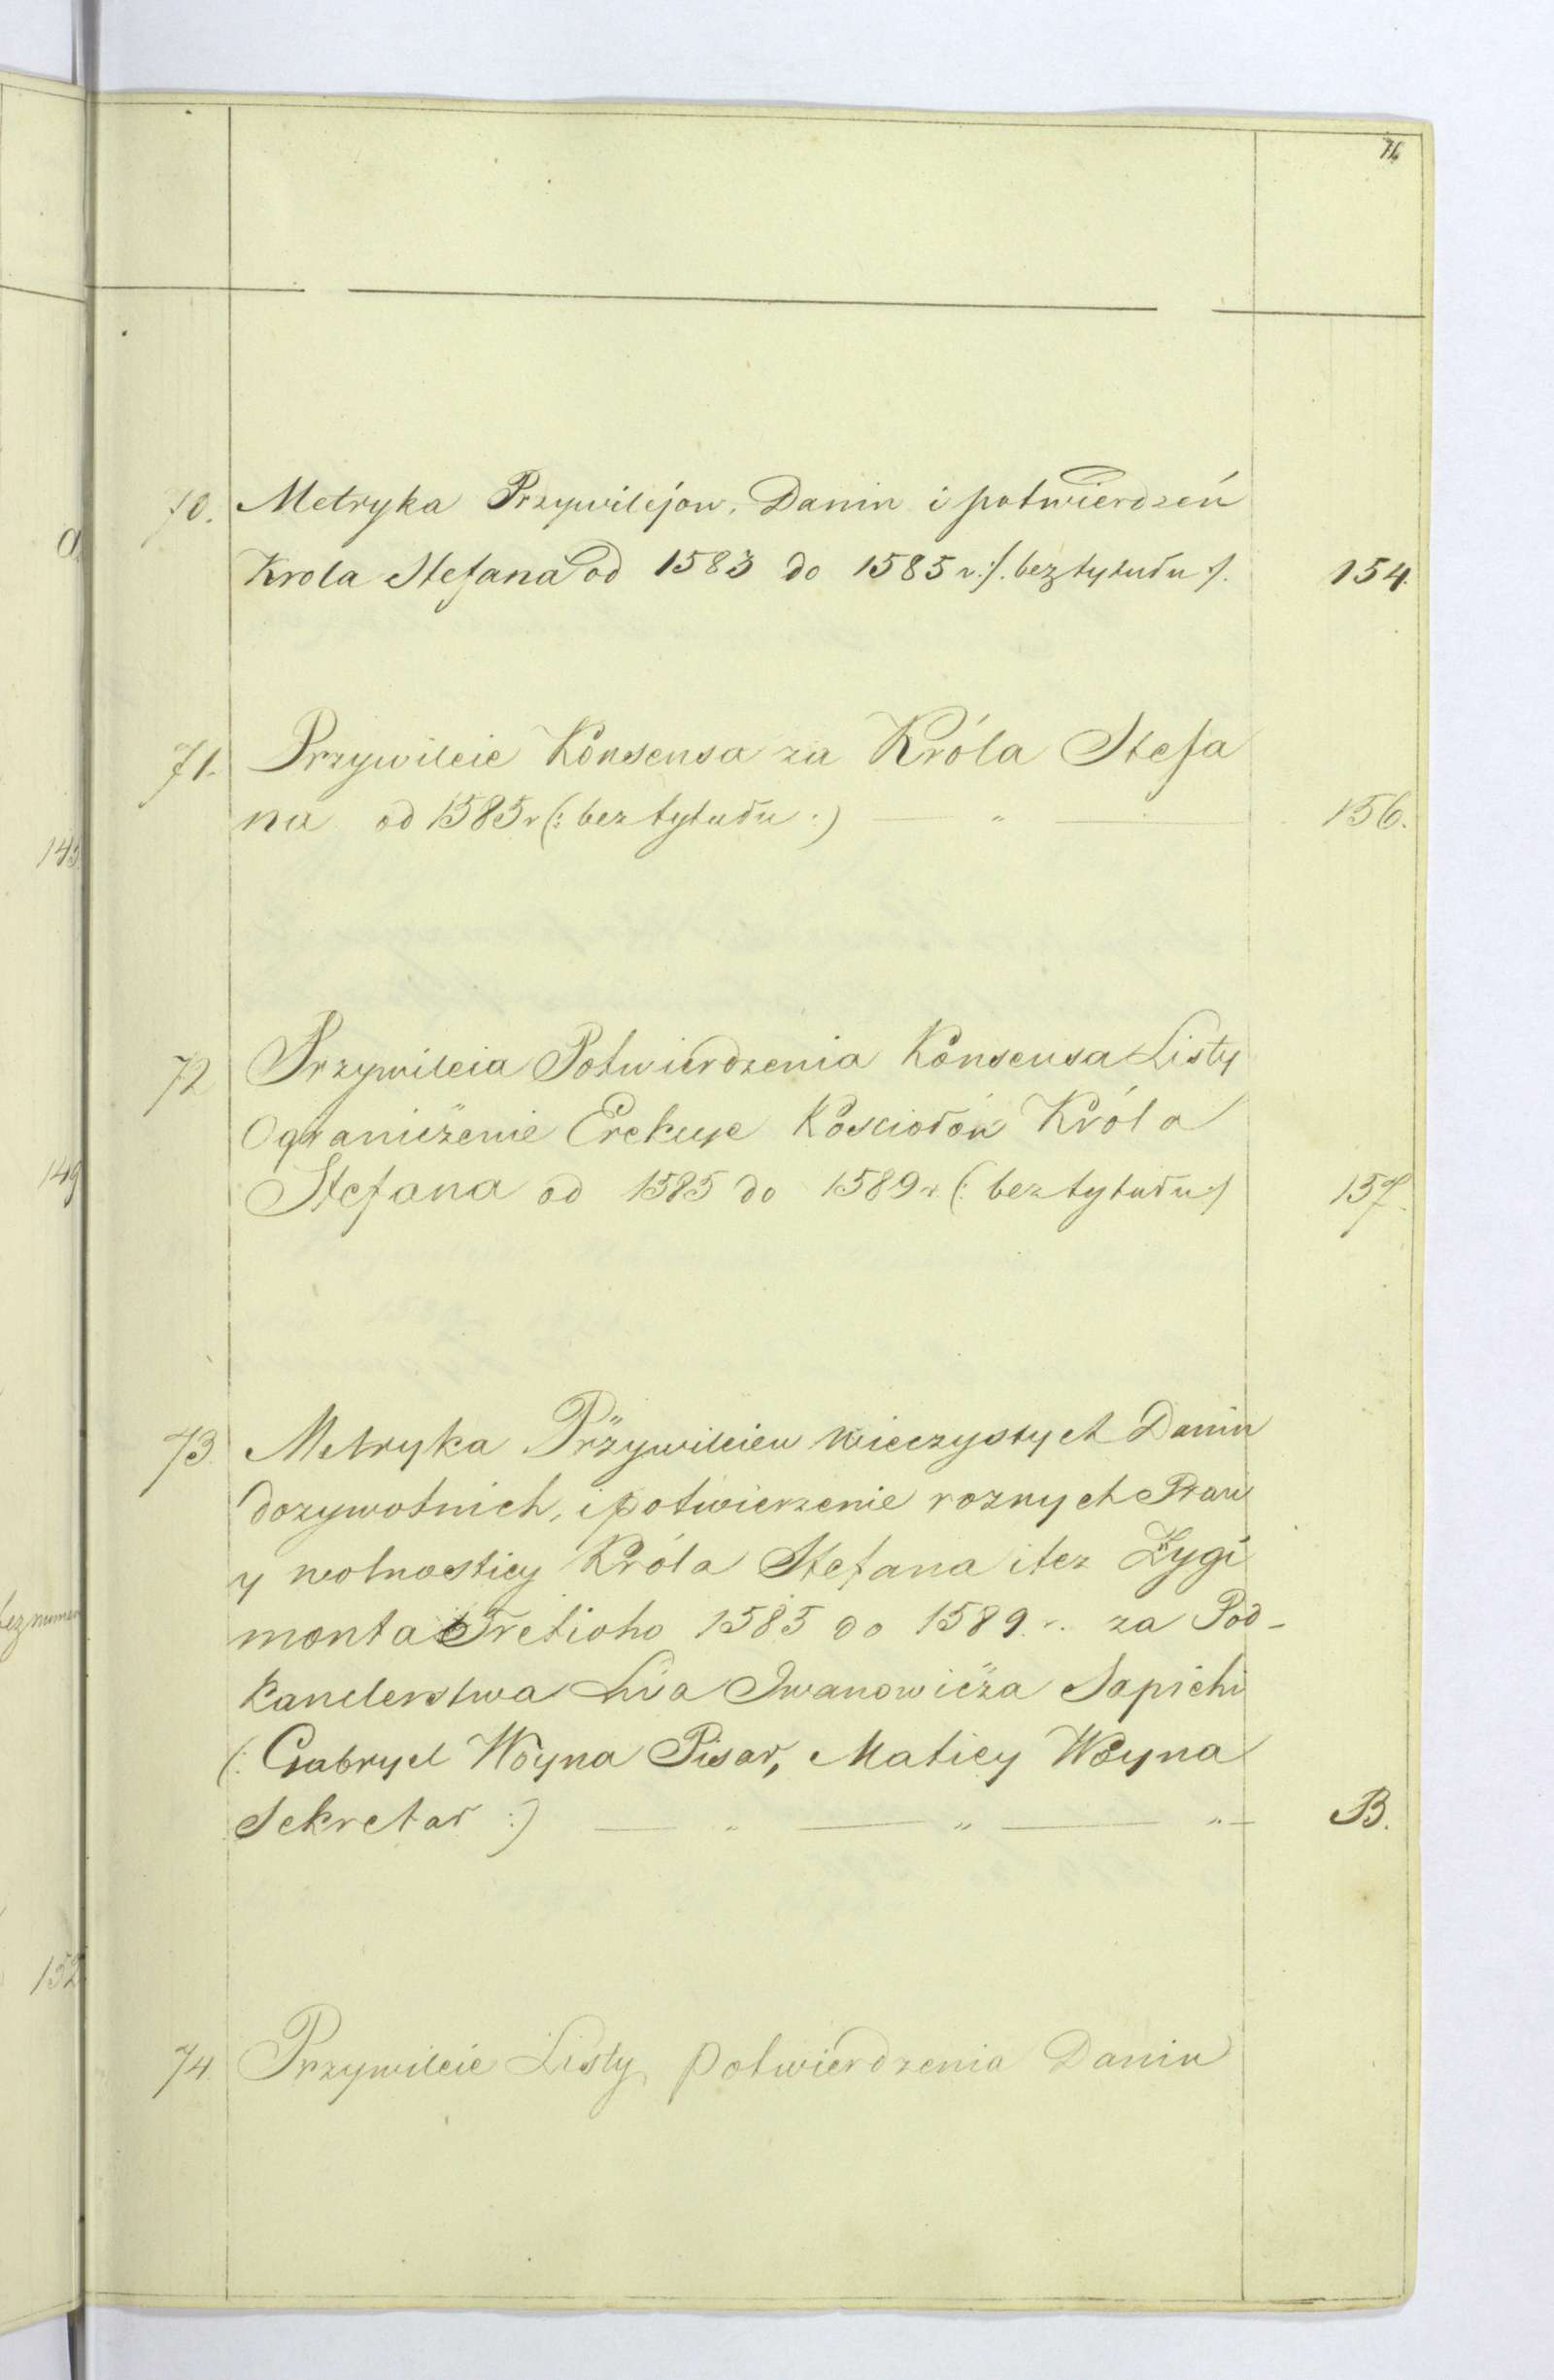 76
70. Metryka Przywilejow, Danin i potwierdzeń
Krola Stefana od 1583 do 1585 r. /. bez tytułu /. 154.
71. Przywileie Konsensa za Króla Stefa
na od 1585 r (: bez tytułu :) — " — 156.
72 Przywileia Potwierdzenia Konsensa Listy
Ograniczenie Erekcye Kosciołów Króla
Stefana od 1585 do 1589 r (: bez tytułu :) 157.
73. Metryka Przywileiew wieczystych Danin
dozywotnich, i potwierzenie roznych Praw
y wolnosticy Króla Stefana itez Zygi
monta Tretioho 1585 do 1589 r. za Pod-
kanclerstwa Lwa Iwanowicza Sapiehi
(: Gabryel Woyna Pisar, Maticy Woyna
Sekretar :) — " — " — " — B.
74. Przywileie Listy potwierdzenia Danin
143
149
bez numer
152